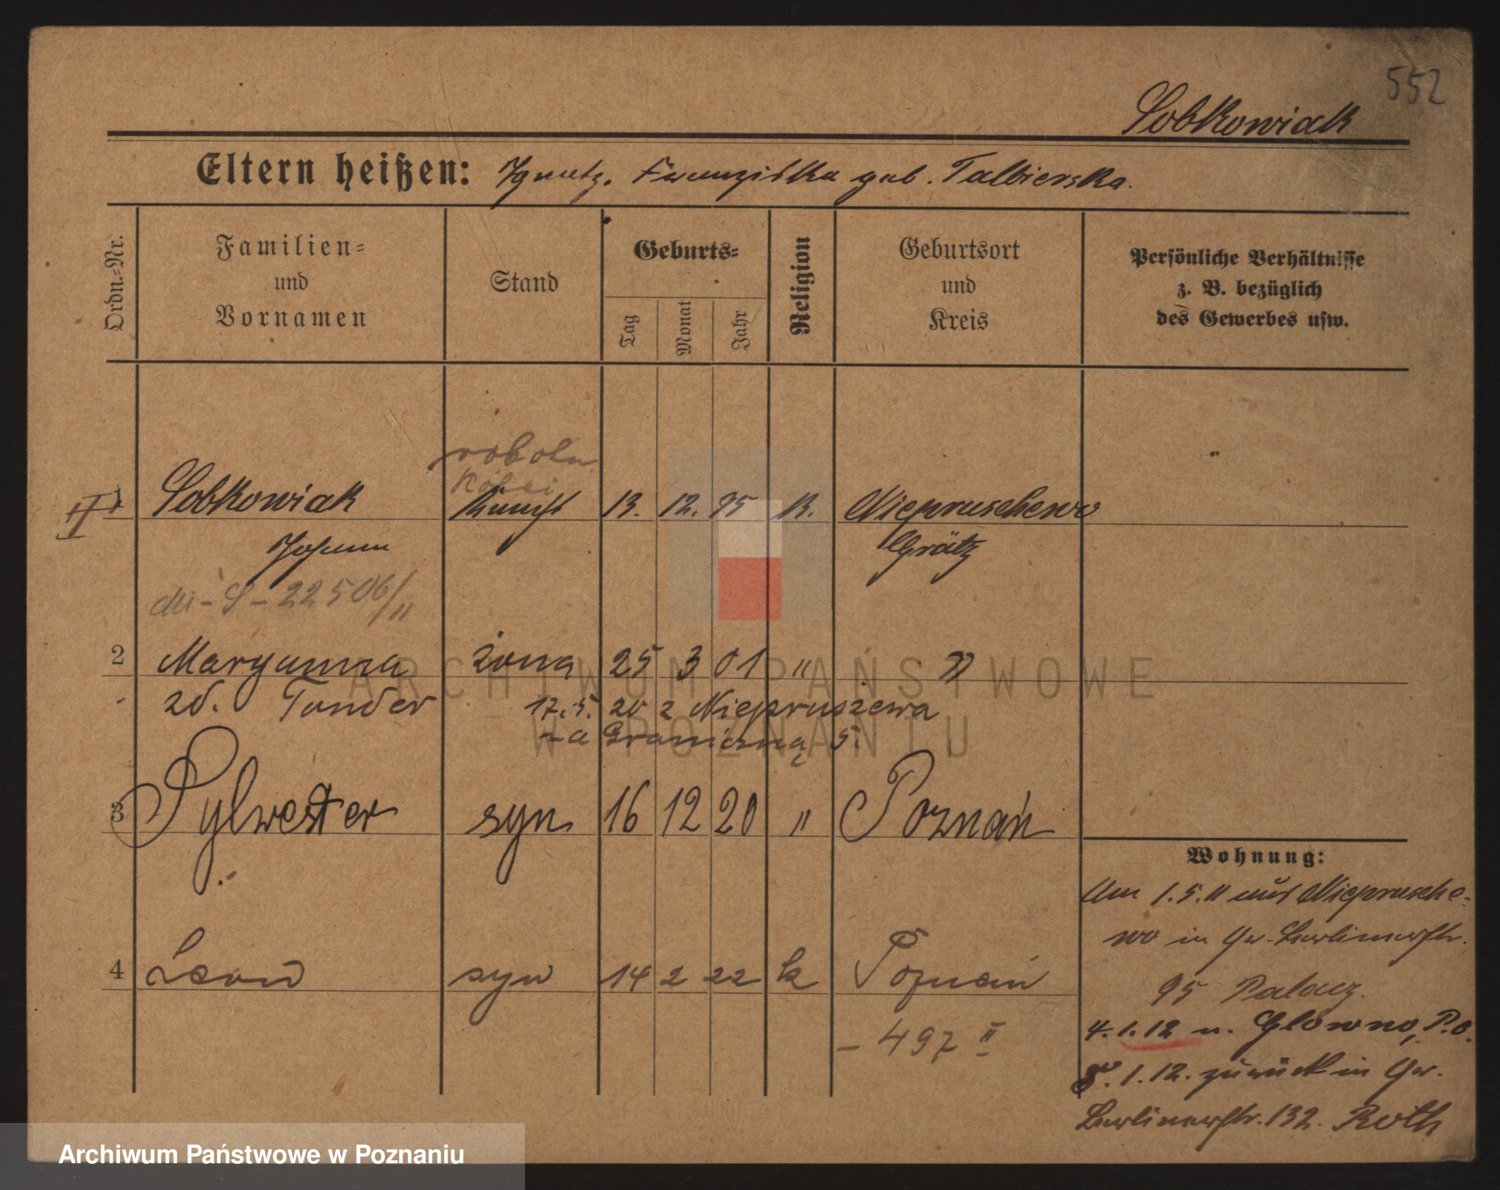 552
Sobkowiak
Eltern heißen: Ignatz, Franziska geb. Talbierska.
Ordn.=Nr.
Familien=
und
Vornamen
Stand
Geburts=
Tag
Monat
Jahr
Religion
Geburtsort
und
Kreis
Persönliche Verhältnisse
z. B. bezüglich
des Gewerbes usw.
robotn
II 1 Sobkowiak Knecht 13. 12. 95 K. Niepruschewo
Johann Grätz
22506/II
2 Maryanna żona 25 3 01 " "
zd. Tonder 17.5. 20 z Niepruszewa
na Graniczną 5.
3 Sylwester syn 16 12 20 " Poznań
4 Leon syn 14 2 22 k Poznań
- 497 II
Wohnung:
Am 1.5.11 aus Nieprusche-
wo in Gr. Berlinerstr.
95 Palacz.
4.1.12 n. Glowno, P.O.
8.1.12. zurück in Gr.
Berlinerstr. 132. Roth
ARCHIWUM PAŃSTWOWE
W POZNANIU
Archiwum Państwowe w Poznaniu